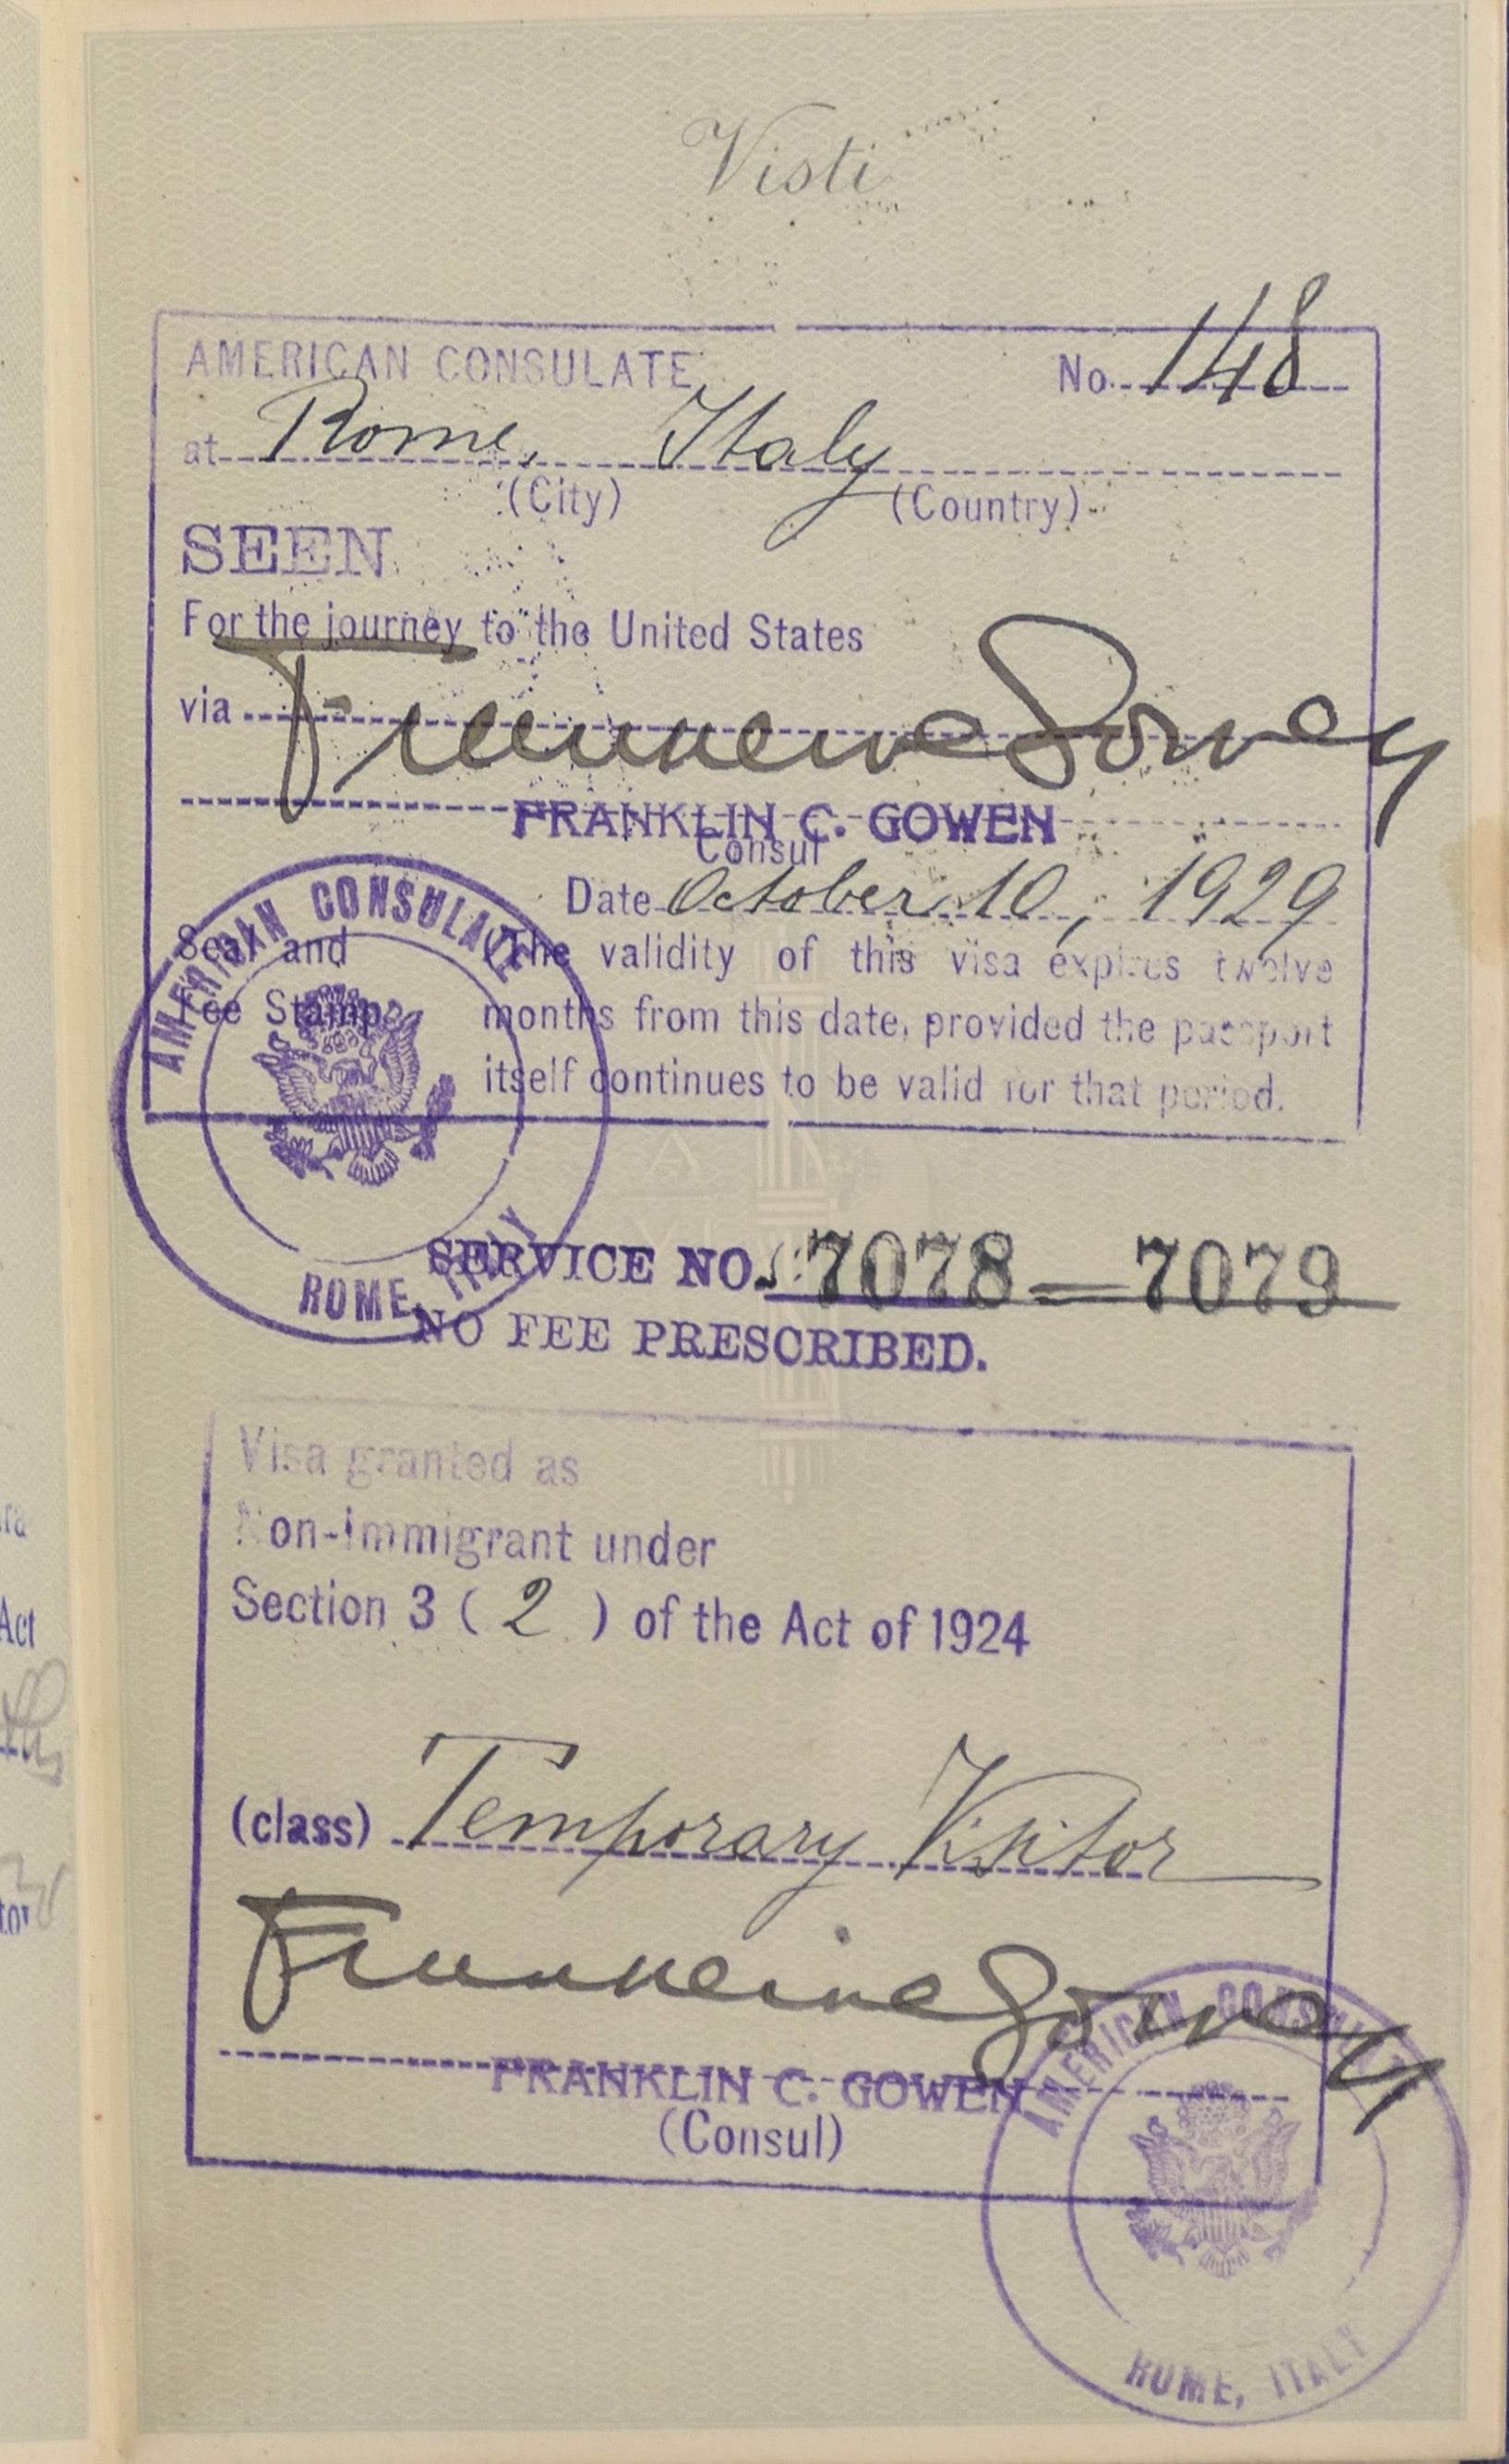 Visti
AMERICAN CONSULATE
No. 148
at Rome, Italy
(City) (Country)
SEEN
For the journey to the United States
via
FRANKLIN C. GOWEN
Consul
Date October 10, 1929
Seal and
Fee Stamp
(The validity of this visa expires twelve
months from this date, provided the passport
itself continues to be valid for that period.
AMERICAN CONSULATE
ROME, ITALY
SERVICE NO. 7078—7079
NO FEE PRESCRIBED.
Visa granted as
Non-immigrant under
Section 3 ( 2 ) of the Act of 1924
(class) Temporary Visitor
FRANKLIN C. GOWEN
(Consul)
AMERICAN CONSULATE
ROME, ITALY
Act